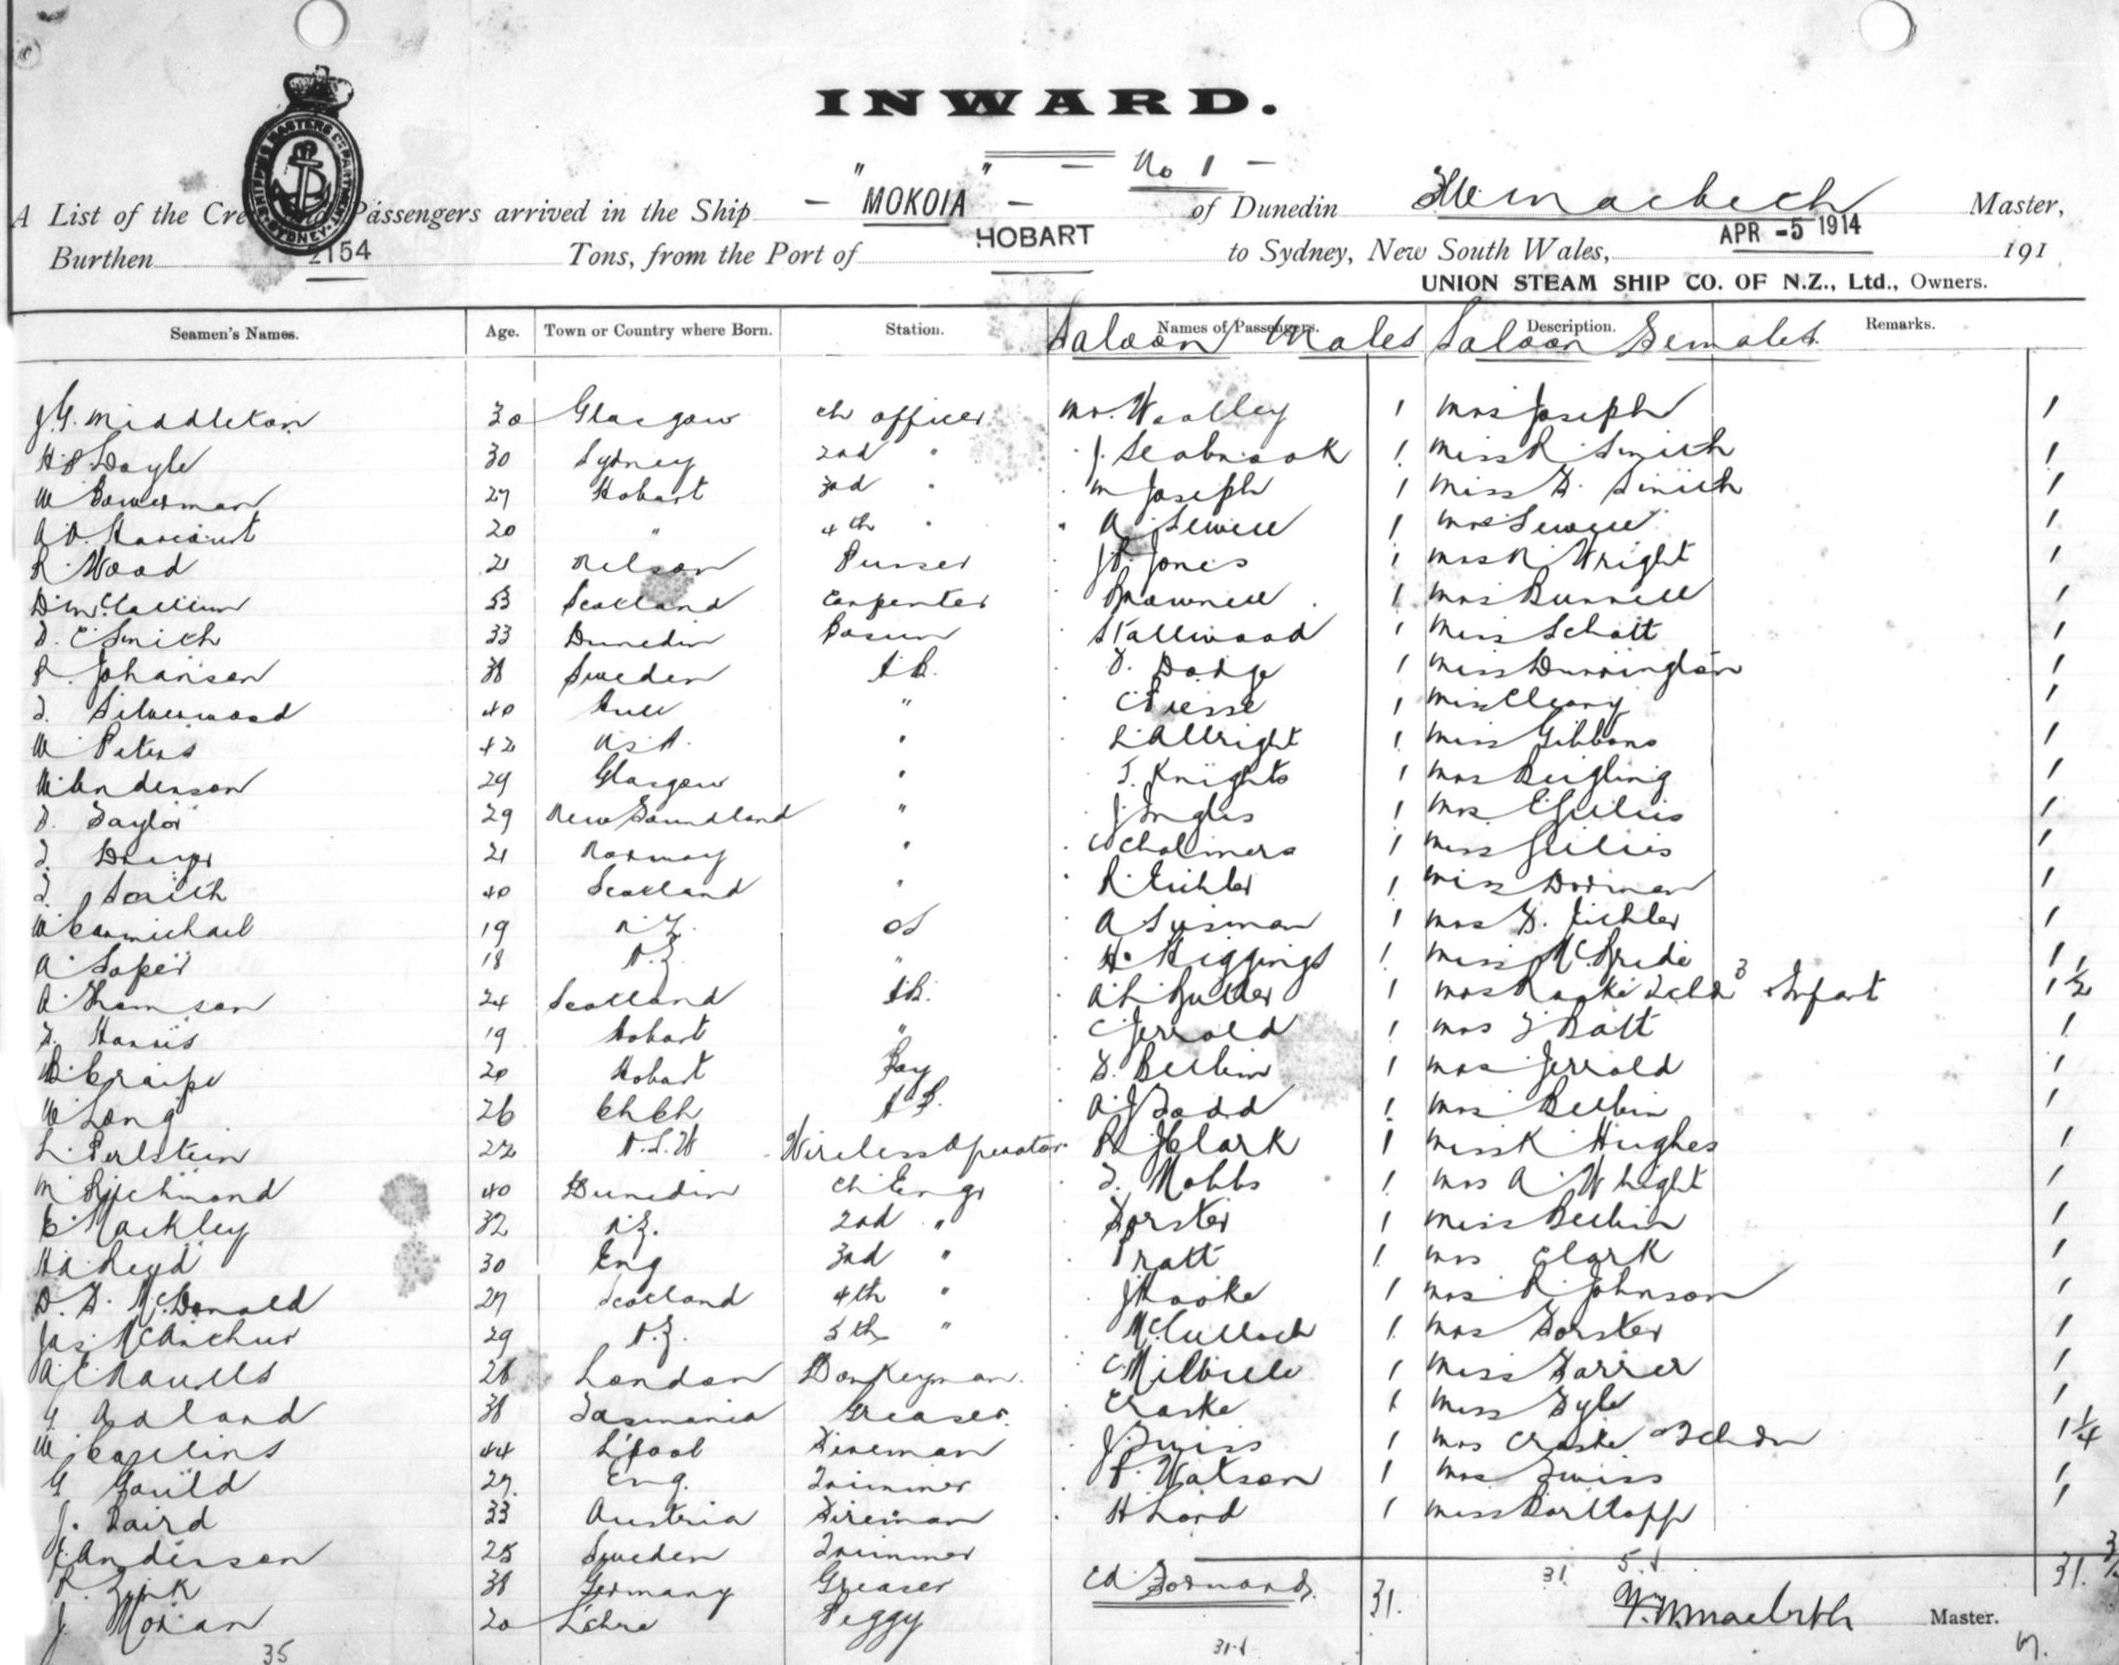 INWARD.
" " — No 1 —
A List of the Crew and Passengers arrived in the Ship — MOKOIA — of Dunedin Macbeth Master,
Burthen 2154 Tons, from the Port of HOBART to Sydney, New South Wales, APR -5 1914 191
UNION STEAM SHIP CO. OF N.Z., Ltd., Owners.
SYDNEY.
Seamen's Names. Age. Town or Country where Born. Station. Names of Passengers. Description. Remarks.
Saloon Males Saloon Females
J.G. Middleton 30 Glasgow ch officer Mr. Woolley 1 Mrs Joseph 1
H.P. Doyle 30 Sydney 2nd " J. Seabrook 1 Miss R Smith 1
W Bowerman 27 Hobart 3rd " M Joseph 1 Miss F. Smith 1
A.D. Harcourt 20 " 4th " A Sewell 1 Mrs Sewell 1
R. Wood 21 Nelson Purser J.R. Jones 1 Mrs R Wright 1
D McCallum 53 Scotland Carpenter Brownell 1 Mrs Burnell 1
D. C Smith 33 Dunedin Bosun Stallwood 1 Miss Schott 1
P. Johansen 38 Sweden A.B. F. Dodge 1 Miss Dunnington 1
T. Silverwood 40 Hull " C Piesse 1 Miss Cleary 1
W Peters 42 U.S.A. " L. Allright 1 Miss Gibbons 1
W. Anderson 29 Glasgow " T. Knights 1 Mrs 1
F. Taylor 29 New Foundland " J. Ingles 1 Mrs E Gillies 1
21 Norway " C Chalmers 1 Miss Gillies 1
T. Smith 40 Scotland " R. Eichler 1 Miss Dorman 1
W Carmichael 19 N.Z. OS A Susman 1 Mrs F. Eichler 1
A. Soper 18 N.Z. " H. Higgings 1 Miss McBride 1
A. Thomson 24 Scotland A.B. A.L. Butler 1 Mrs Rooke 3 chdn & Infant 1 1/2
F. Harris 19 Hobart " C Jerrold 1 Mrs T Batt 1
20 Hobart Boy F. Beebin 1 Mrs Jerrold 1
W Long 26 Ch Ch A.B. A.J Todd 1 Mrs Beebin 1
L. Perlstein 22 N.S.W Wireless Operator R. J Clark 1 Miss K Hughes 1
M Richmond 40 Dunedin Ch Engr T. Nobbs 1 Mrs A. W Light 1
E. Mackley 32 N.Z. 2nd " Forster 1 Miss Beebin 1
H.A. Reyd 30 Eng 3rd " Pratt 1 Mrs Clark 1
D. F. McDonald 27 Scotland 4th " J Rooke 1 Mrs R. Johnson 1
Jas McArthur 29 N.Z. 5th " McCulloch 1 Mrs Forster 1
A.E. 26 London Donkeyman. C. 1 Miss Farrer 1
G Adland 38 Tasmania Greaser. Craske 1 Miss Fyle 1
W. 44 L'pool Fireman J. Swiss 1 Mrs Craske & chdn 1 1/4
G Gould 27. Eng. Trimmer P. Watson 1 Mrs Swiss 1
J. Baird 33 Austria Fireman H Lord 1 Miss 1
Anderson 25 Sweden Trimmer
R. Zink 38 Germany Greaser Cd Forward. 31. 31. 5. 31. 3/4
J. Moran 20 Peggy W. Macbeth Master.
35 31